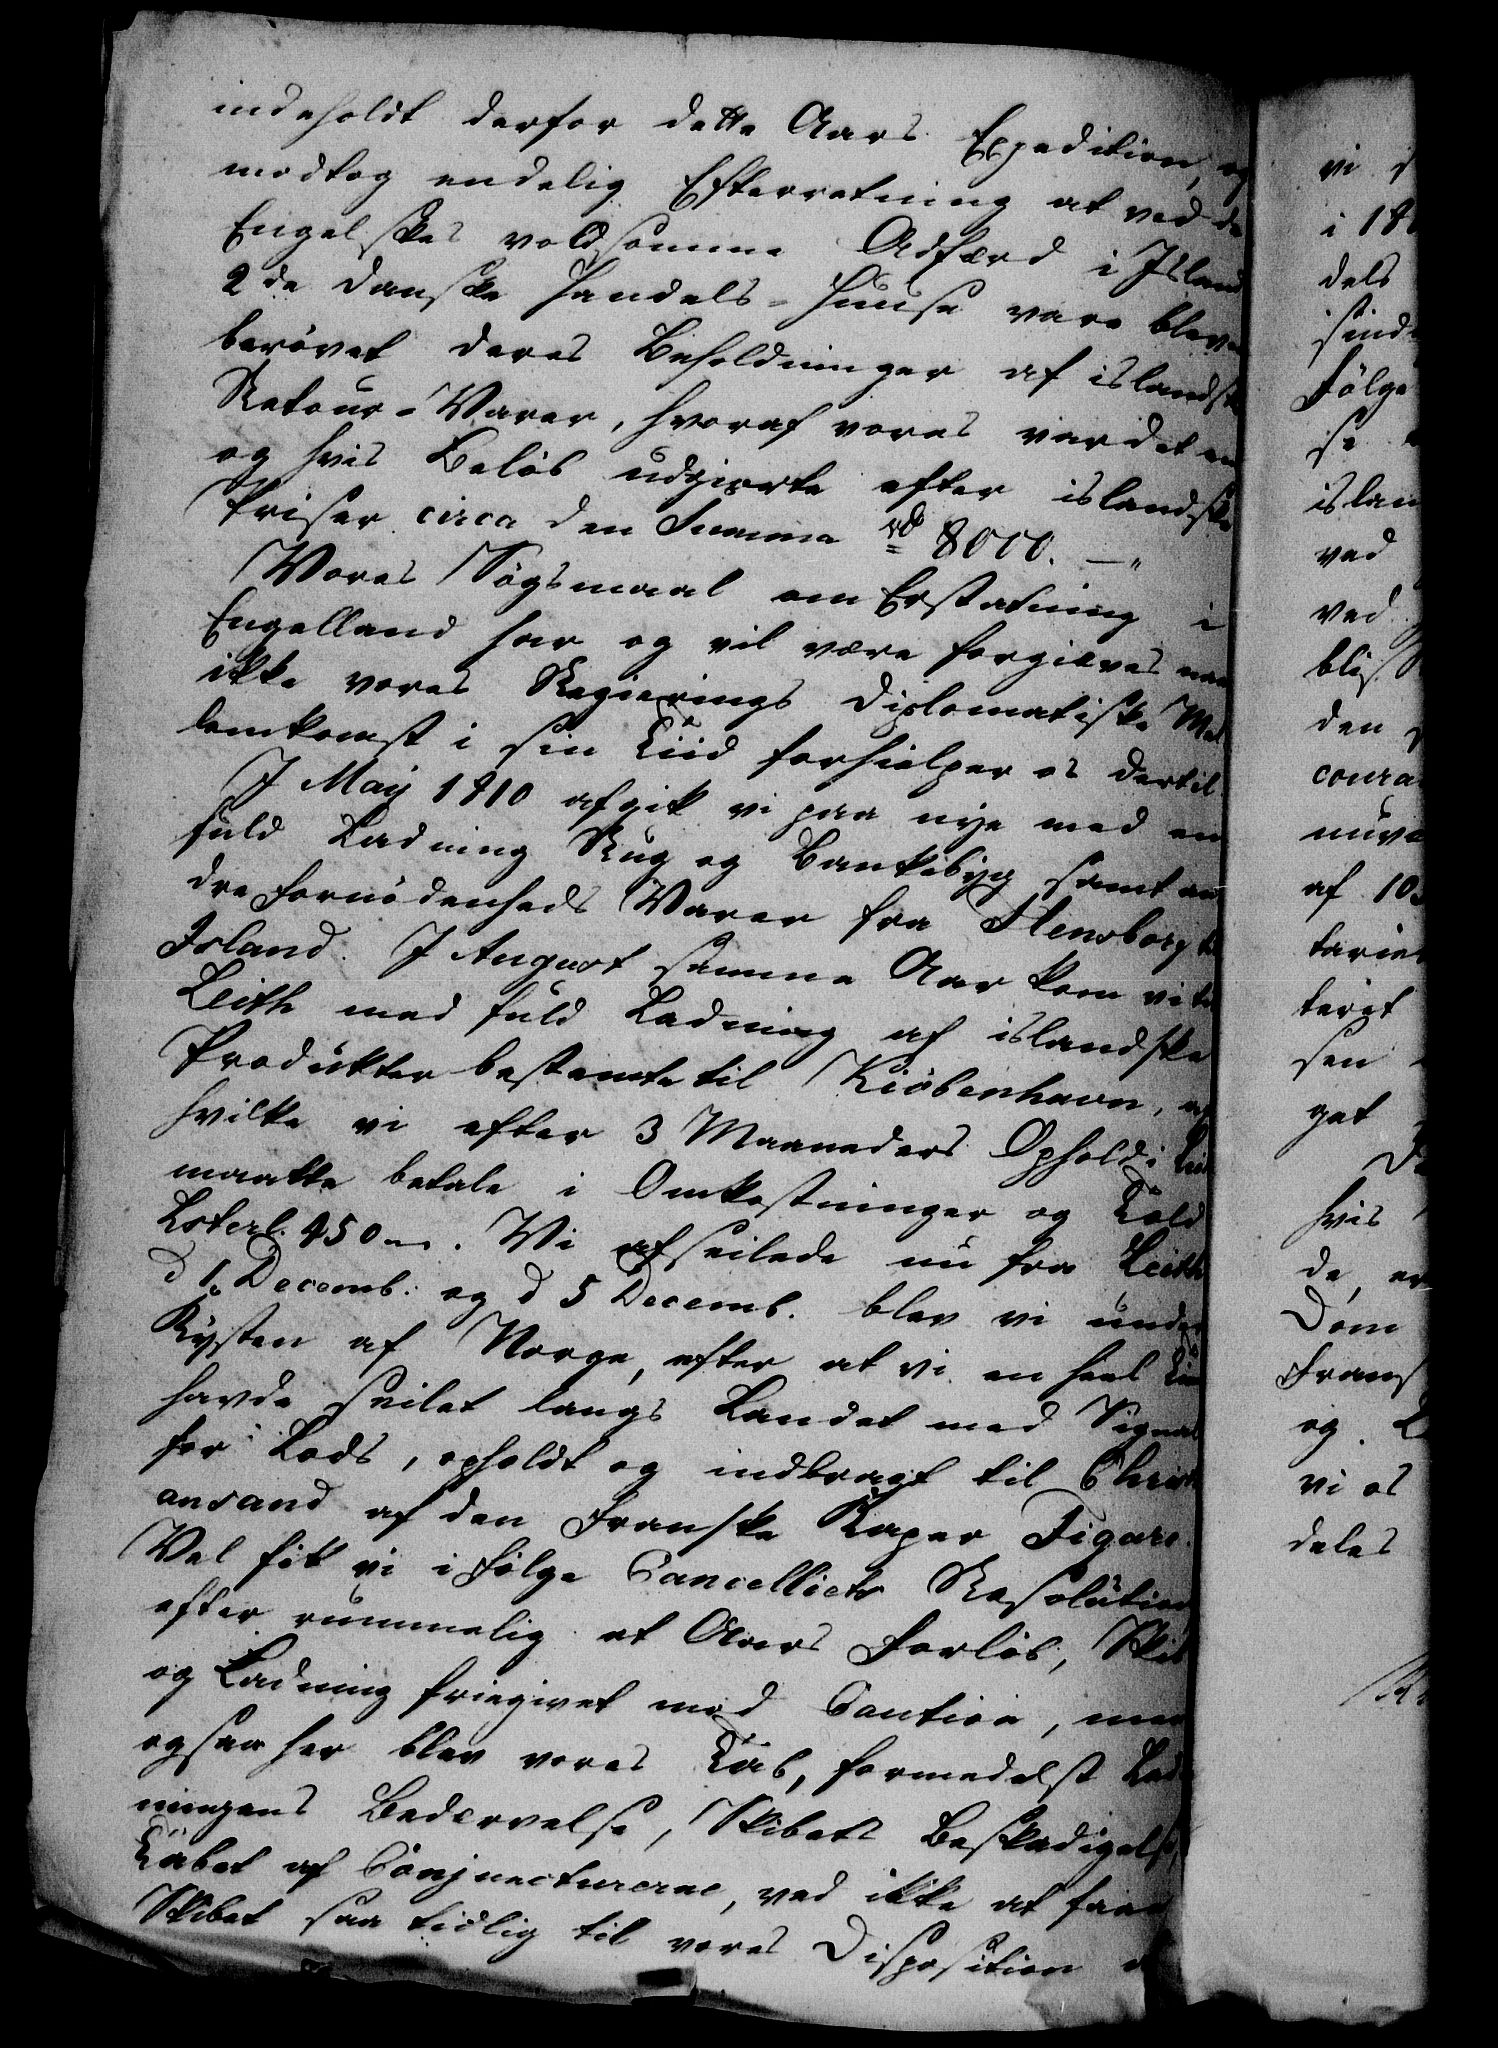 indeholdt derfor dette Aars Expedition, og
modtog endelig Efterretning at ved de
Engelskes voldsomme Adfærd i Island
2de danske Handels-Huuse vare bleven
berövet deres Beholdninger af islandske
Retour-Varer, hvoraf vores var det ene
og hvis Belöb udgiorte efter islandske
Priser circa den Summa rd 8000. —"
Vores Sögsmaal om Erstatning i
Engelland har og vil være forgieves naar
ikke vores Regierings diplomatiske Mel
lemkomst i sin Tiid forhielper os dertil
I Maij 1810 afgik vi paa nye med en
fuld Ladning Rug og Bankebyg samt an
dre Fornödenheds Varer fra Flensborg til
Island. I August samme Aar kom vi til
Leith med fuld Ladning af islandske
Produkter bestemte til Kiöbenhavn, af
hvilke vi efter 3 Maaneders Ophold i Leith
maatte betale i Omkostninger og Told
Lsterl. 450 –. Vi afseilede nu fra Leith
d 1. Decemb. og d 5 Decemb. blev vi under
Kysten af Norge, efter at vi en heel Tiid
havde seilet langs Landet med Signal
for Lods, opholdt og indbragt til Christi
ansand af den Franske Kaper Figaro.
Vel fik vi i Fölge Cancelliets Resolution
efter rummelig et Aars Forlöb, Skib
og Ladning friegivet mod Caution, men
ogsaa her blev vores Tab, formedelst Lad
ningens Bedærvelse, Skibets Beskadigelse,
Tabet af Conjuncturerne, ved ikke at faae
Skibet saa tidlig til vores Disposition
vi
i 18
dels
Fölge
se
islan
ved
ved
den
coura
nuvæ
af 10
teret
sen
get
hvis
de, er
Dom
Frans
og
vi os
deles